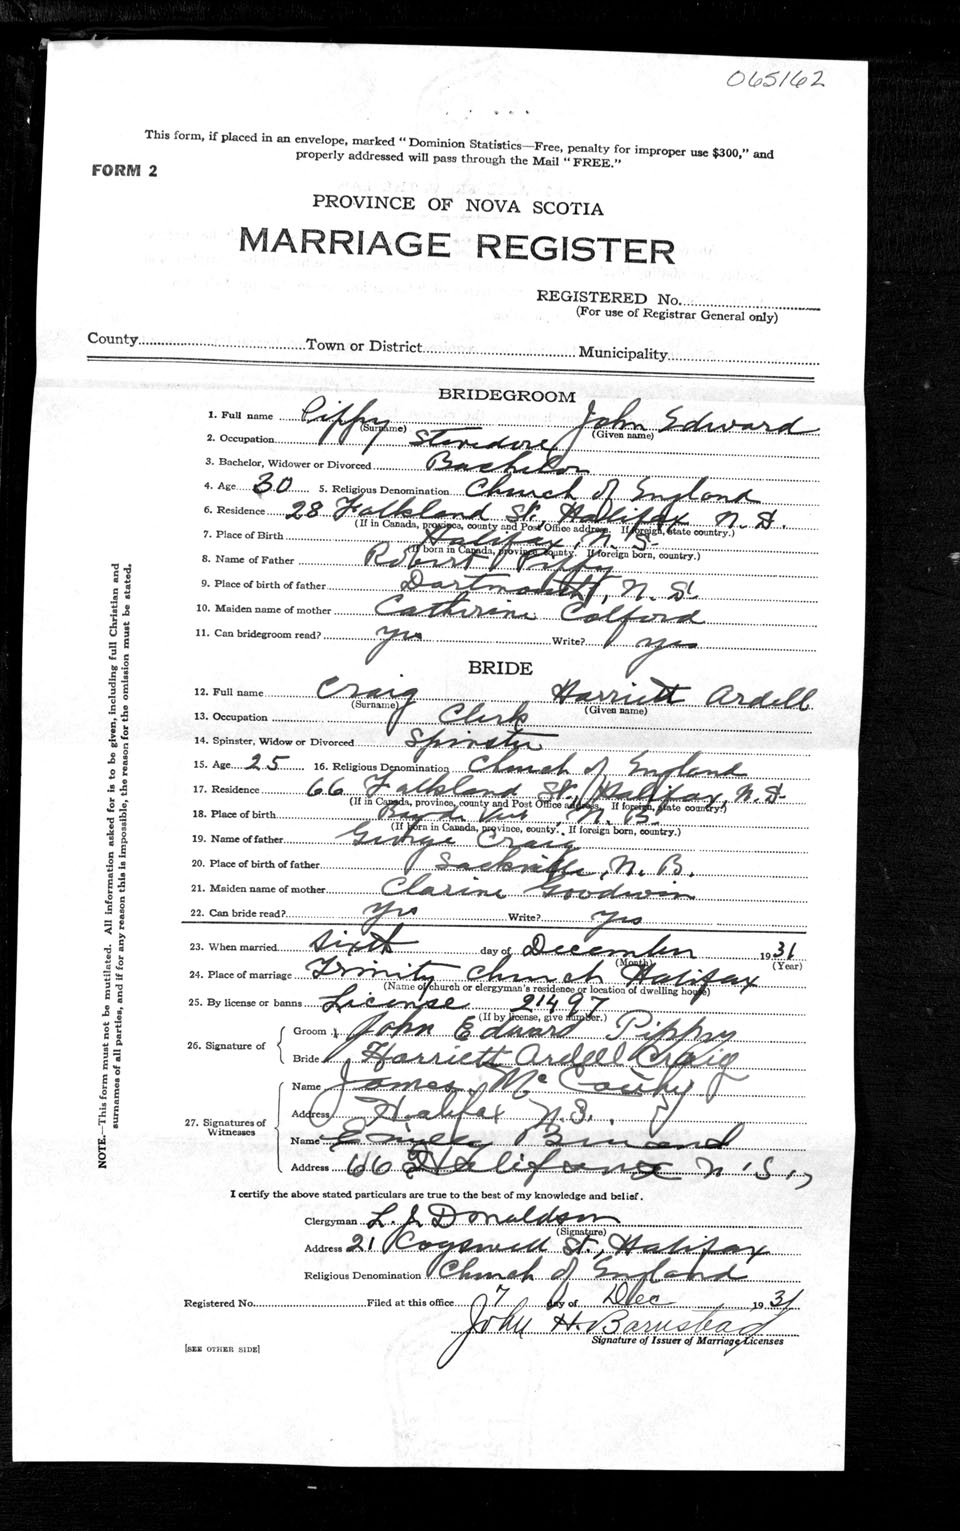 065162
This form, if placed in an envelope, marked "Dominion Statistics—Free, penalty for improper use $300," and
properly addressed will pass through the Mail "FREE."
FORM 2
PROVINCE OF NOVA SCOTIA
MARRIAGE REGISTER
REGISTERED No.
(For use of Registrar General only)
County Town or District Municipality
BRIDEGROOM
1. Full name Pippy John Edward
(Surname) (Given name)
2. Occupation Stevedore
3. Bachelor, Widower or Divorced Bachelor
4. Age 30 5. Religious Denomination Church of England
6. Residence 28 Falkland St., Halifax N.S.
(If in Canada, province, county and Post Office address. If foreign, state country.)
7. Place of Birth Halifax, N.S.
(If born in Canada, province, county. If foreign born, country.)
8. Name of Father Robert Pippy
9. Place of birth of father Dartmouth, N.S.
10. Maiden name of mother Catherine Colford
11. Can bridegroom read? yes Write? yes
BRIDE
12. Full name Craig Harriett Ardell
(Surname) (Given name)
13. Occupation Clerk
14. Spinster, Widow or Divorced Spinster
15. Age 25 16. Religious Denomination Church of England
17. Residence 66 Falkland St., Halifax, N.S.
(If in Canada, province, county and Post Office address. If foreign, state country.)
18. Place of birth Bay de Vin, N.B.
(If born in Canada, province, county. If foreign born, country.)
19. Name of father George Craig
20. Place of birth of father Sackville, N.B.
21. Maiden name of mother Clarine Goodwin
22. Can bride read? yes Write? yes
23. When married sixth day of December 1931
(Month) (Year)
24. Place of marriage Trinity Church Halifax
(Name of church or clergyman's residence or location of dwelling house)
25. By license or banns License 21497
(If by license, give number.)
26. Signature of
Groom John Edward Pippy
Bride Harriett Ardell Craig
27. Signatures of Witnesses
Name James Mc
Address Halifax N.S.
Name Emily
Address 66 N.S.,
I certify the above stated particulars are true to the best of my knowledge and belief.
Clergyman L. J. Donaldson
(Signature)
Address 21 Cogswell St., Halifax
Religious Denomination Church of England
Registered No. Filed at this office 7 day of Dec 1931
John H. Barnstead
Signature of Issuer of Marriage Licenses
[SEE OTHER SIDE]
NOTE.—This form must not be mutilated. All information asked for is to be given, including full Christian and
surnames of all parties, and if for any reason this is impossible, the reason for the omission must be stated.